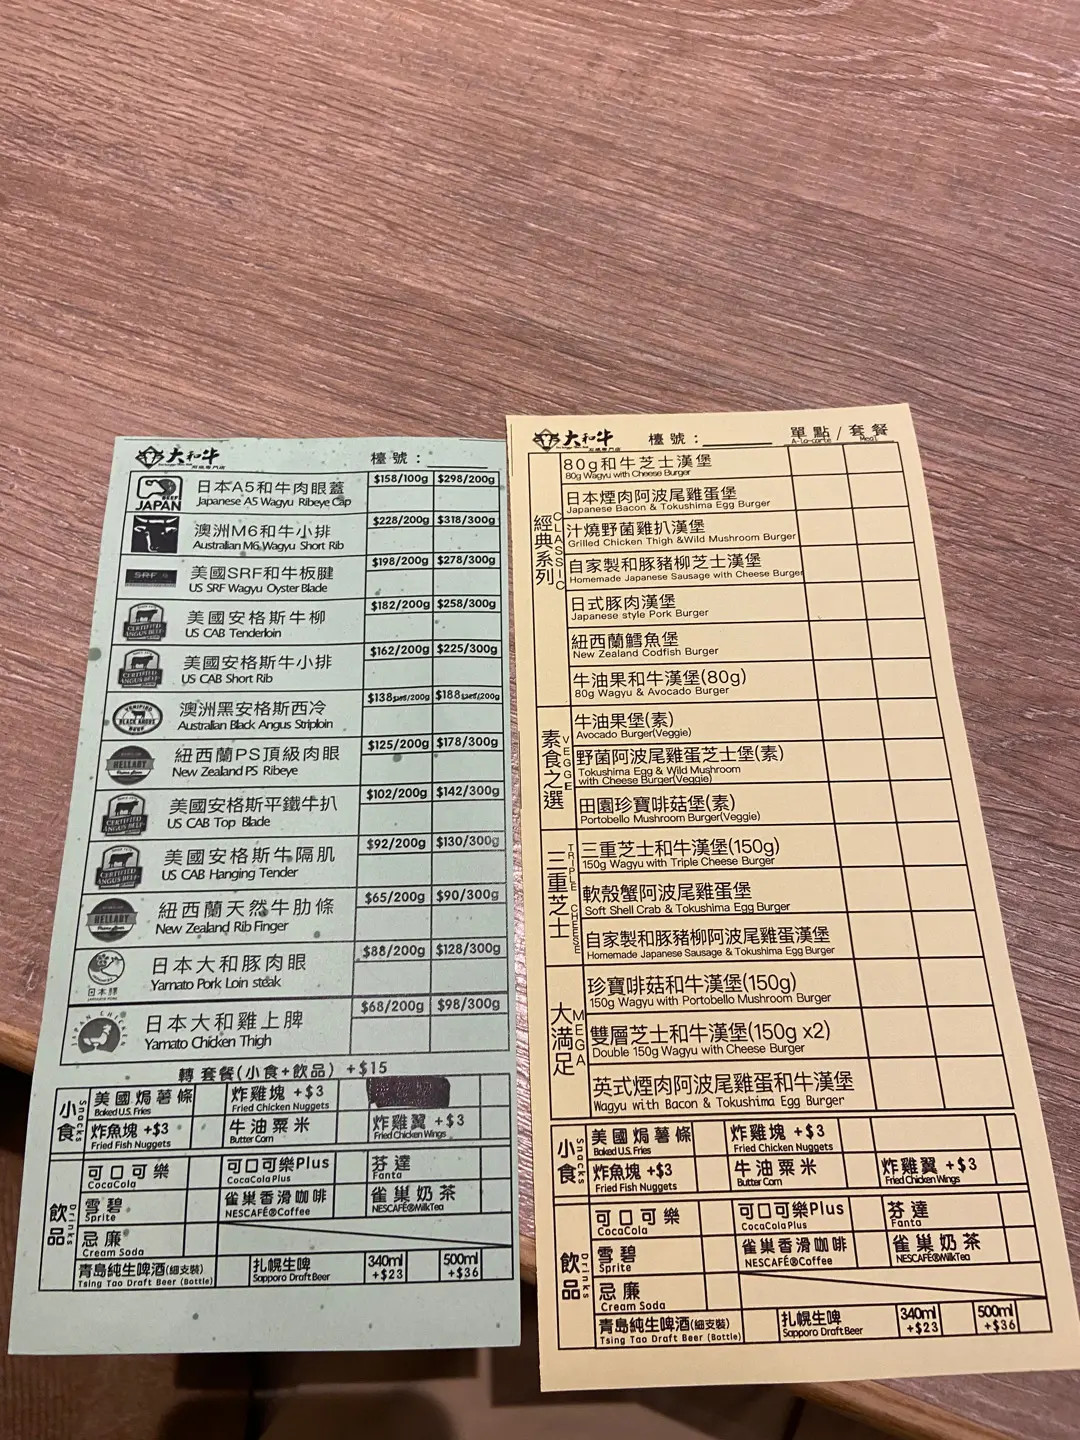 大和牛
檯號：
JAPAN
日本A5和牛肉眼蓋
Japanese A5 Wagyu Ribeye Cap
$158/100g $298/200g
澳洲M6和牛小排
Australian M6 Wagyu Short Rib
$228/200g $318/300g
SRF
美國SRF和牛板腱
US SRF Wagyu Oyster Blade
$198/200g $278/300g
CERTIFIED
ANGUS BEEF
美國安格斯牛柳
US CAB Tenderloin
$182/200g $258/300g
CERTIFIED
ANGUS BEEF
美國安格斯牛小排
US CAB Short Rib
$162/200g $225/300g
BLACK ANGUS
澳洲黑安格斯西冷
Australian Black Angus Striploin
$138 /200g $188 /200g
HELLABY
紐西蘭PS頂級肉眼
New Zealand PS Ribeye
$125/200g $178/300g
CERTIFIED
ANGUS BEEF
美國安格斯平鐵牛扒
US CAB Top Blade
$102/200g $142/300g
CERTIFIED
ANGUS BEEF
美國安格斯牛隔肌
US CAB Hanging Tender
$92/200g $130/300g
HELLABY
紐西蘭天然牛肋條
New Zealand Rib Finger
$65/200g $90/300g
日本豚
日本大和豚肉眼
Yamato Pork Loin steak
$88/200g $128/300g
JAPAN CHICKEN
日本大和雞上脾
Yamato Chicken Thigh
$68/200g $98/300g
轉套餐(小食+飲品) +$15
小食 Snacks
美國焗薯條
Baked U.S. Fries
炸雞塊 +$3
Fried Chicken Nuggets
炸魚塊 +$3
Fried Fish Nuggets
牛油粟米
Butter Corn
炸雞翼 +$3
Fried Chicken Wings
飲品 Drinks
可口可樂
CocaCola
可口可樂Plus
CocaCola Plus
芬達
Fanta
雪碧
Sprite
雀巢香滑咖啡
NESCAFÉ®Coffee
雀巢奶茶
NESCAFÉ®MilkTea
忌廉
Cream Soda
青島純生啤酒(細支裝)
Tsing Tao Draft Beer (Bottle)
扎幌生啤
Sapporo Draft Beer
340ml
+$23
500ml
+$36
大和牛
檯號：
單點 / 套餐
A-la-carte Meal
經典系列 CLASSIC
80g和牛芝士漢堡
80g Wagyu with Cheese Burger
日本煙肉阿波尾雞蛋堡
Japanese Bacon & Tokushima Egg Burger
汁燒野菌雞扒漢堡
Grilled Chicken Thigh &Wild Mushroom Burger
自家製和豚豬柳芝士漢堡
Homemade Japanese Sausage with Cheese Burger
日式豚肉漢堡
Japanese style Pork Burger
紐西蘭鱈魚堡
New Zealand Codfish Burger
牛油果和牛漢堡(80g)
80g Wagyu & Avocado Burger
素食之選 VEGGE
牛油果堡(素)
Avocado Burger(Veggie)
野菌阿波尾雞蛋芝士堡(素)
Tokushima Egg & Wild Mushroom
with Cheese Burger(Veggie)
田園珍寶啡菇堡(素)
Portobello Mushroom Burger(Veggie)
三重芝士 TRIPLE CHEESE
三重芝士和牛漢堡(150g)
150g Wagyu with Triple Cheese Burger
軟殼蟹阿波尾雞蛋堡
Soft Shell Crab & Tokushima Egg Burger
自家製和豚豬柳阿波尾雞蛋漢堡
Homemade Japanese Sausage & Tokushima Egg Burger
大滿足 MEGA
珍寶啡菇和牛漢堡(150g)
150g Wagyu with Portobello Mushroom Burger
雙層芝士和牛漢堡(150g x2)
Double 150g Wagyu with Cheese Burger
英式煙肉阿波尾雞蛋和牛漢堡
Wagyu with Bacon & Tokushima Egg Burger
小食 Snacks
美國焗薯條
Baked U.S. Fries
炸雞塊 +$3
Fried Chicken Nuggets
炸魚塊 +$3
Fried Fish Nuggets
牛油粟米
Butter Corn
炸雞翼 +$3
Fried Chicken Wings
飲品 Drinks
可口可樂
CocaCola
可口可樂Plus
CocaCola Plus
芬達
Fanta
雪碧
Sprite
雀巢香滑咖啡
NESCAFÉ®Coffee
雀巢奶茶
NESCAFÉ®MilkTea
忌廉
Cream Soda
青島純生啤酒(細支裝)
Tsing Tao Draft Beer (Bottle)
扎幌生啤
Sapporo Draft Beer
340ml
+$23
500ml
+$36